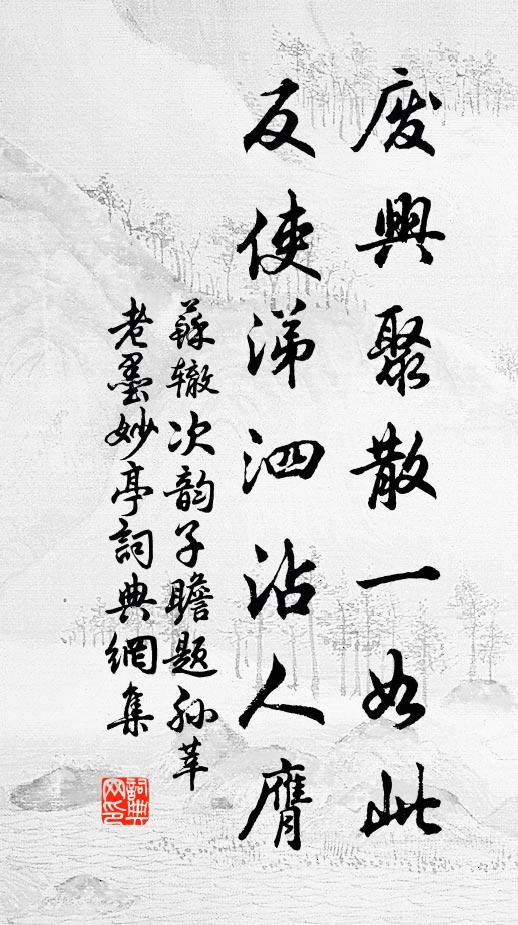 廢興聚散一如此
反使涕泗沾人膺
蘇辙次韵子瞻题孙莘
老墨妙亭詞典網集
詞典
网印